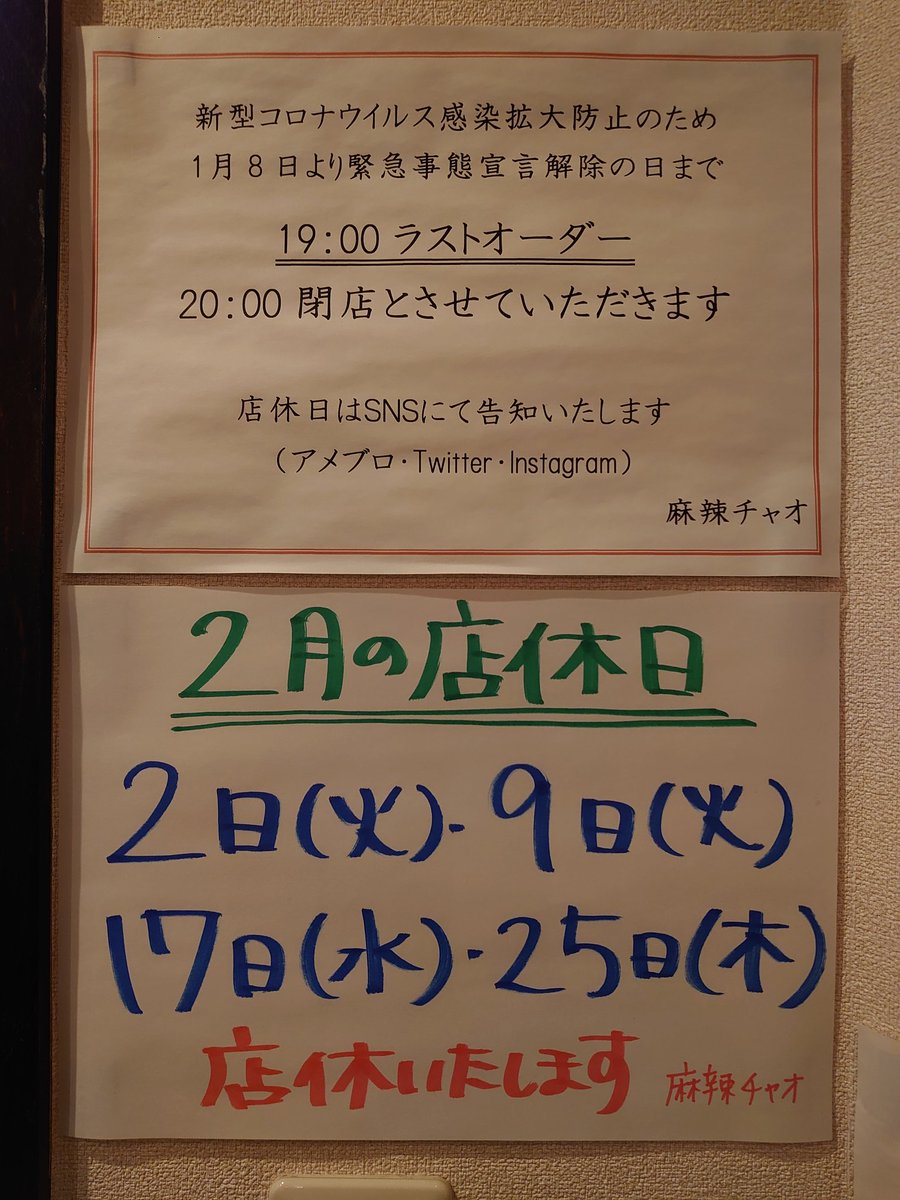 新型コロナウイルス感染拡大防止のため
1月8日より緊急事態宣言解除の日まで
19:00 ラストオーダー
20:00 閉店とさせていただきます
店休日はSNSにて告知いたします
(アメブロ・Twitter・Instagram)
麻辣チャオ
2月の店休日
2日(火)・9日(火)
17日(水)・25日(木)
店休いたします 麻辣チャオ